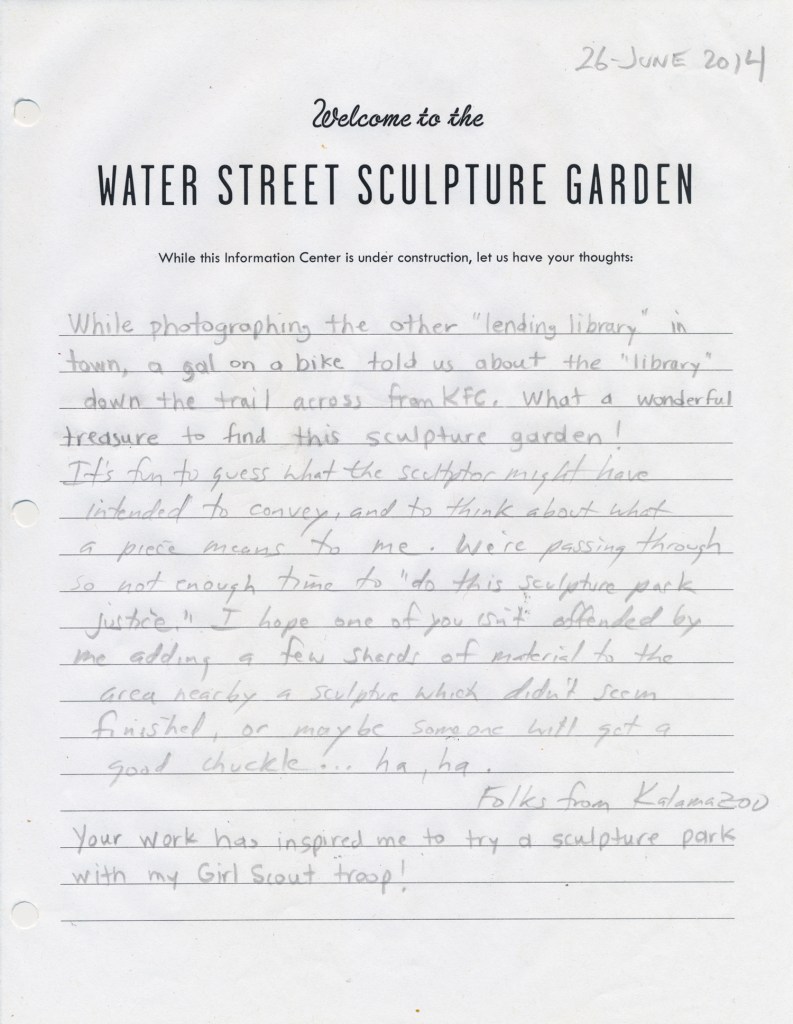 26-JUNE 2014
Welcome to the
WATER STREET SCULPTURE GARDEN
While this Information Center is under construction, let us have your thoughts:
While photographing the other "lending library" in
town, a gal on a bike told us about the "library"
down the trail across from KFC. What a wonderful
treasure to find this sculpture garden!
It's fun to guess what the scultptor might have
intended to convey, and to think about what
a piece means to me. We're passing through
so not enough time to "do this sculpture park
justice." I hope one of you isn't offended by
me adding a few sherds of material to the
area nearby a sculptue which didn't seem
finished, or maybe someone will get a
good chuckle!... ha, ha.
Folks from Kalamazoo
Your work has inspired me to try a sculpture park
with my Girl Scout troop!